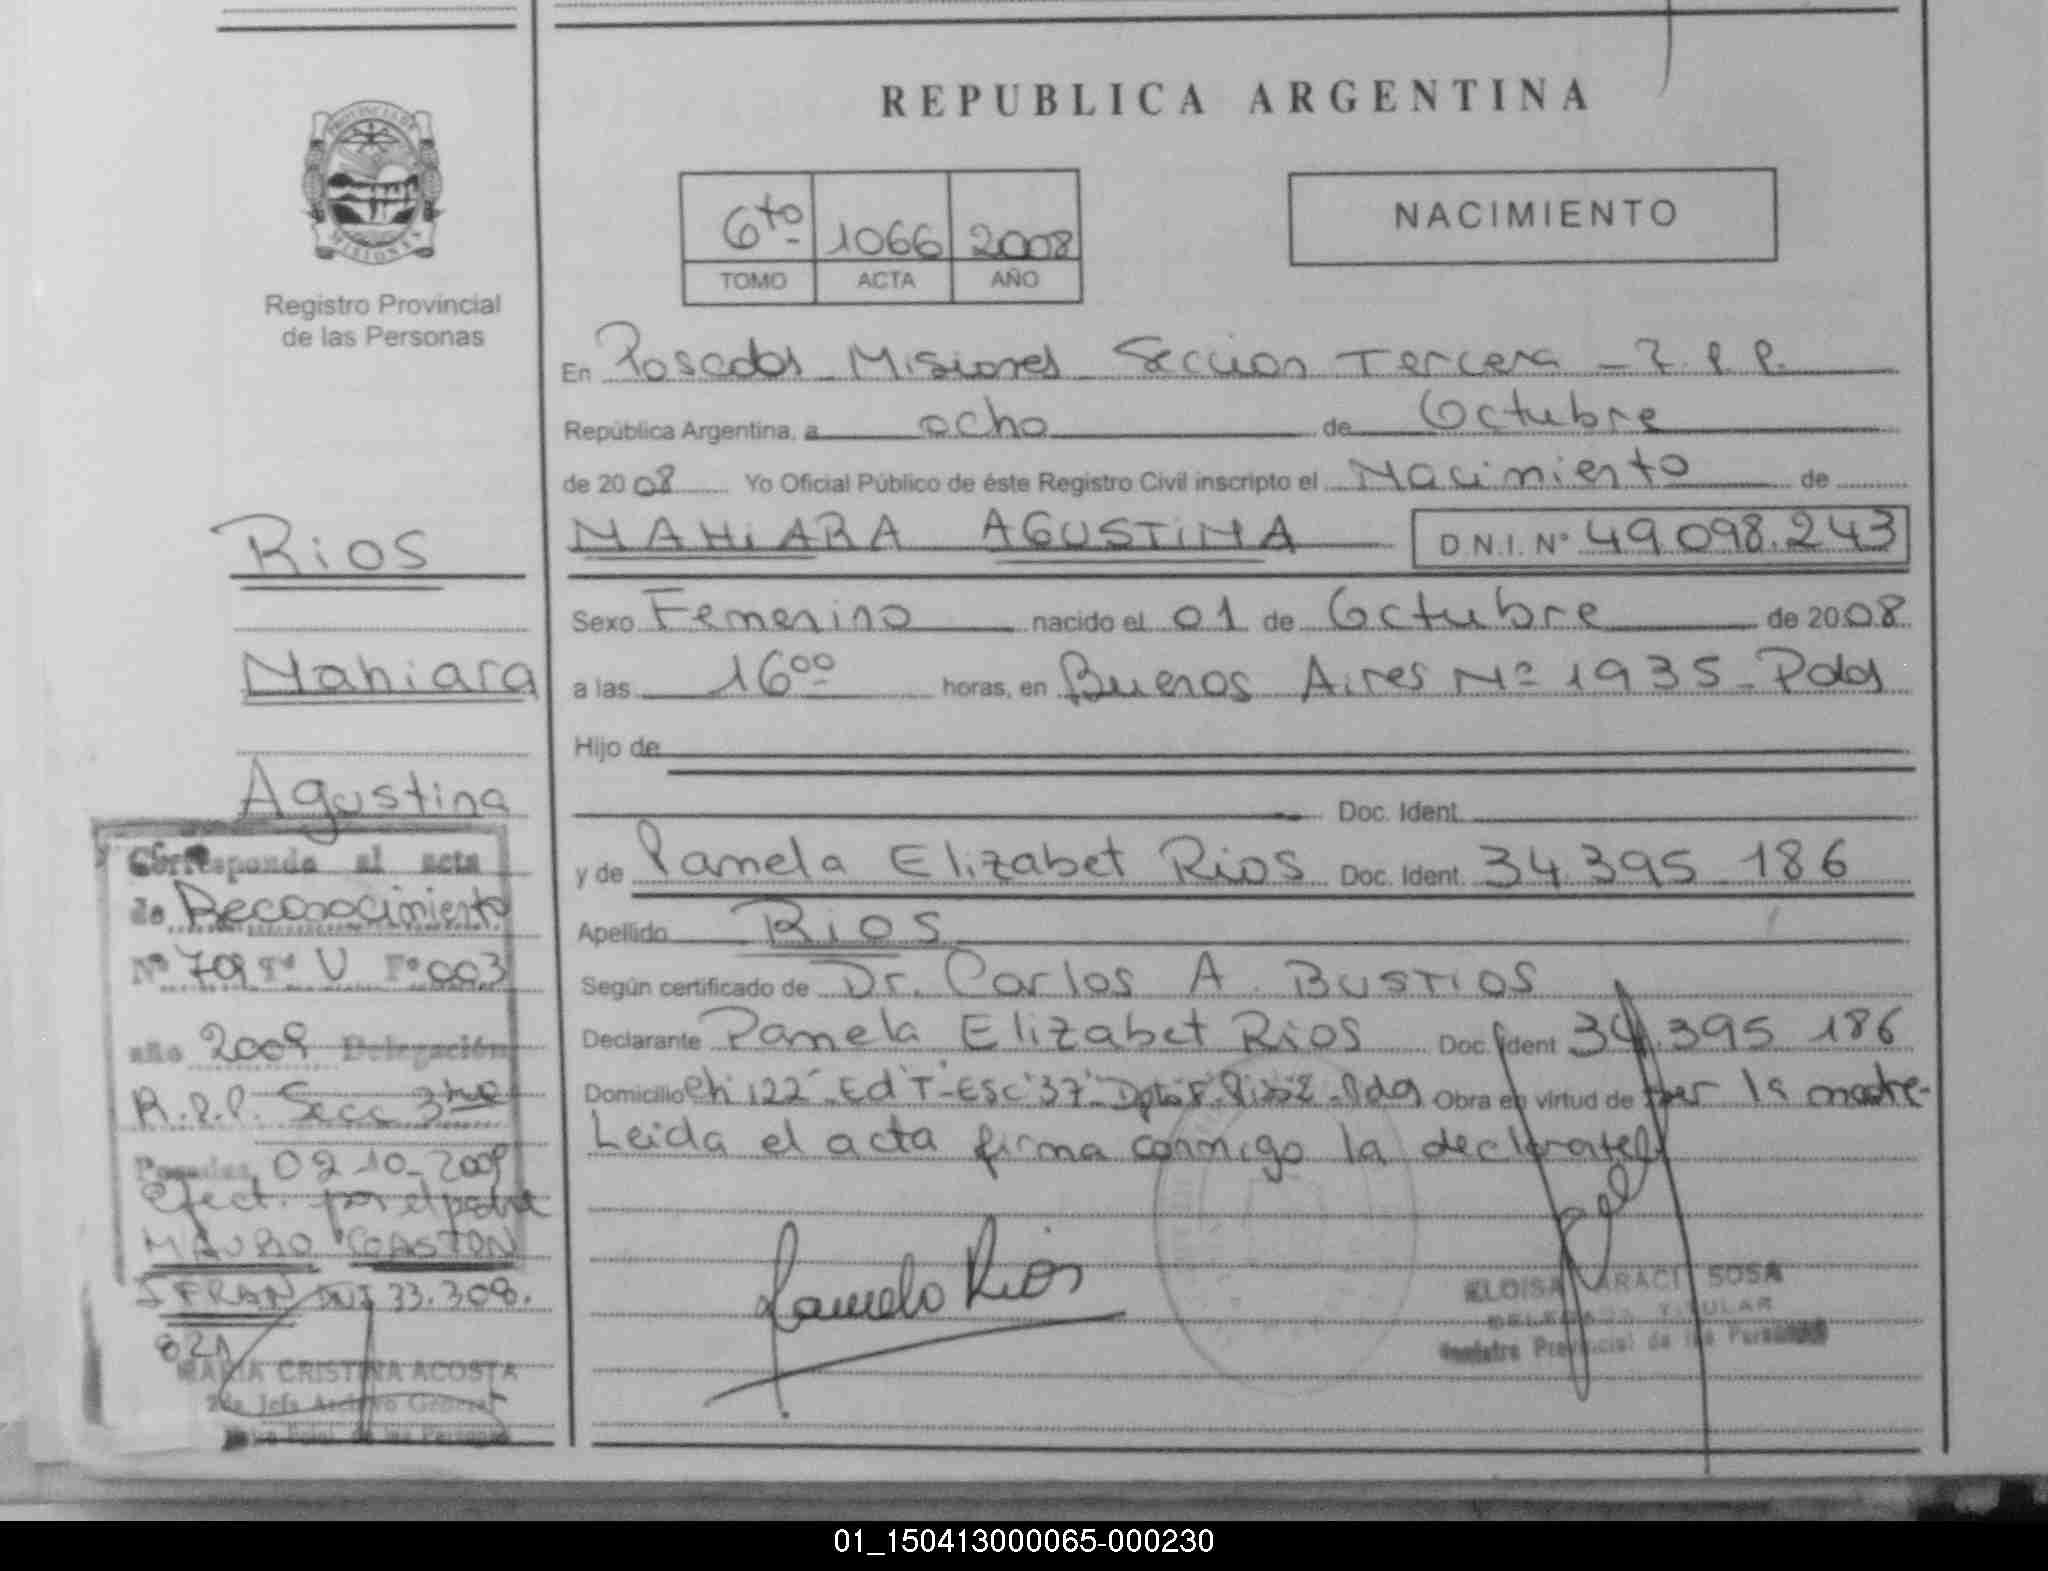 REPUBLICA ARGENTINA
PROVINCIA DE
MISIONES
Registro Provincial
de las Personas
6to 1066 2008
TOMO ACTA AÑO
NACIMIENTO
En Posadas Misiones Seccion Tercera - R.P.P.
República Argentina, a ocho de Octubre
de 2008 Yo Oficial Público de éste Registro Civil inscripto el Nacimiento de
NAHiARA AGUSTiNA D.N.I. Nº 49.098.243
Sexo Femenino nacido el 01 de Octubre de 2008
a las 16oo horas, en Buenos Aires Nº 1935 - Pdas
Hijo de
Doc. Ident.
y de Pamela Elizabet Rios Doc. Ident. 34.395.186
Apellido Rios
Según certificado de Dr. Carlos A. BUSTIOS
Declarante Pamela Elizabet Rios Doc. Ident 34.395.186
Domicilio Ch 122 - Ed T - Esc 37 - Dpto F - Pdas Obra en virtud de ser la madre-
Leida el acta firma conmigo la declarante
Pamela Rios
ELOISA ARACI SOSA
DELEGADA TITULAR
Registro Provincial de las Personas
Rios
Nahiara
Agustina
Corresponde al acta
de Reconocimiento
Nº 709 Tº V Fº 003
año 2009 Delegación
R.P.P. Secc 3ra
Posadas, 09-10-2009
efect. por el padre
MAURO GASTON
DNI 33.308.
821
MARIA CRISTINA ACOSTA
2da Jefa Archivo General
de las Personas
01_150413000065-000230